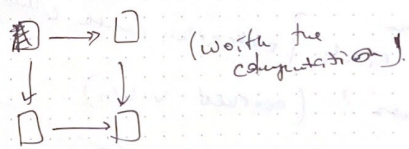 (worth the
computation).